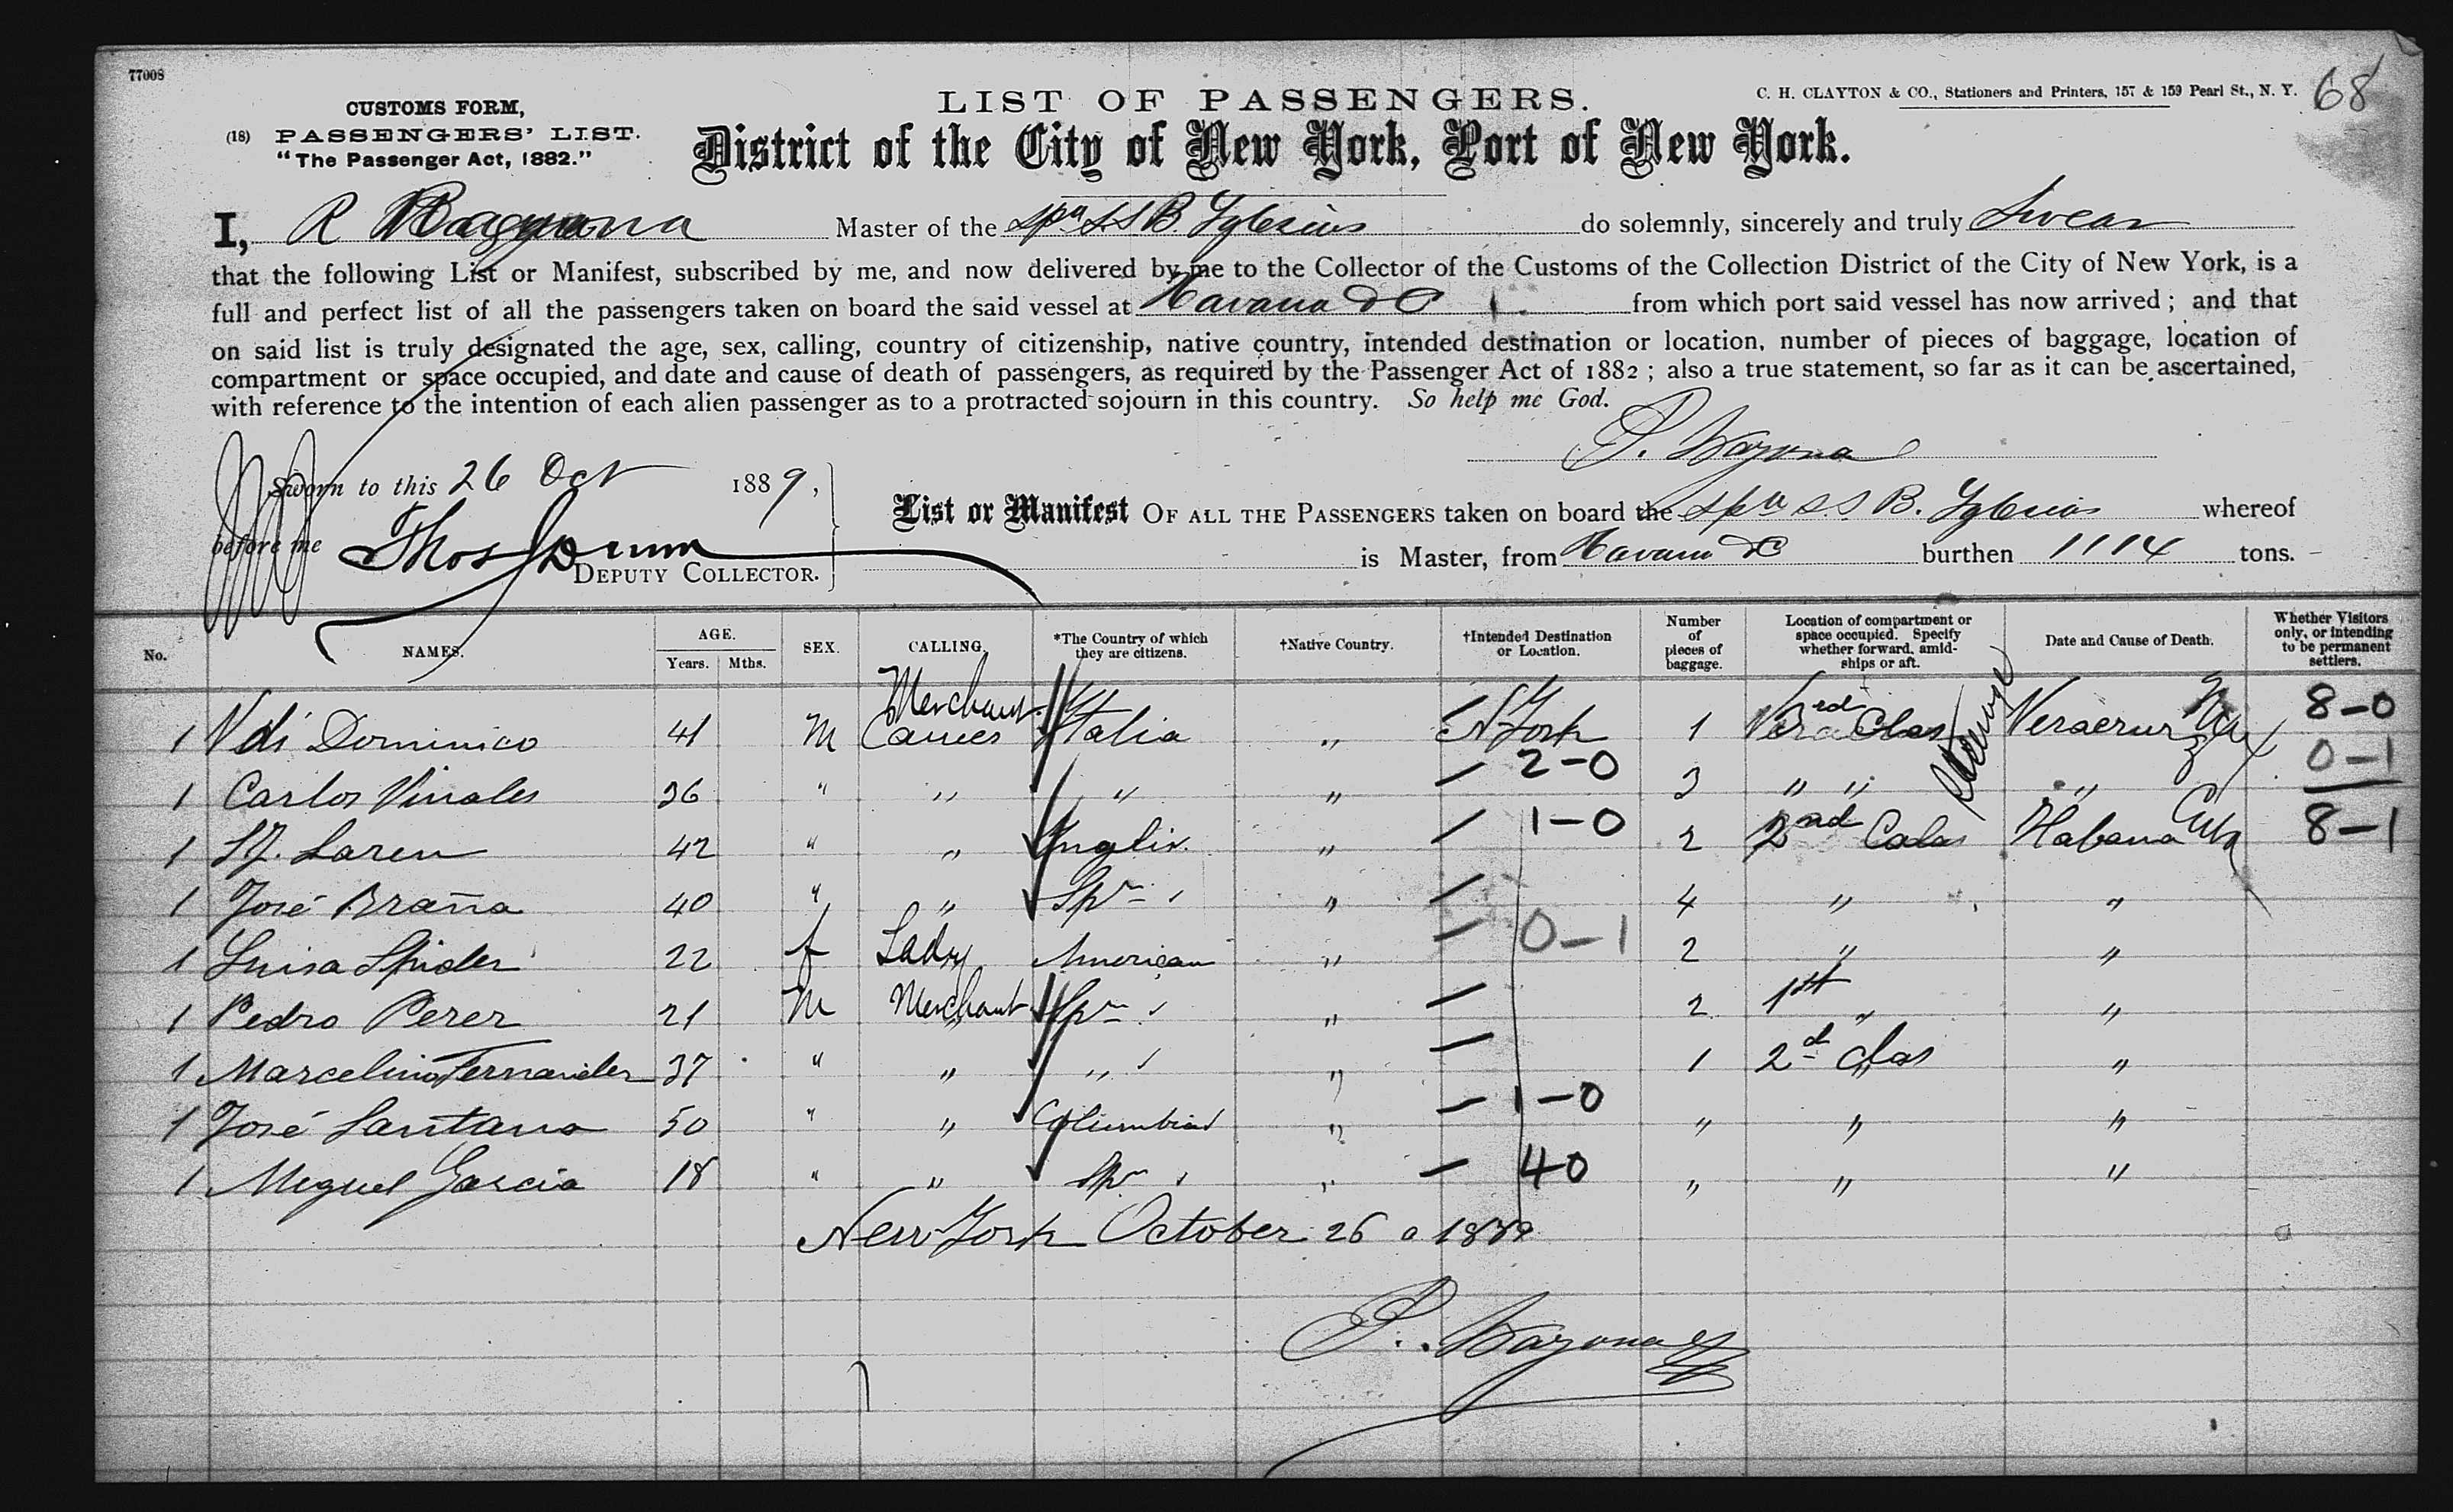 77008
CUSTOMS FORM,
(18) PASSENGERS' LIST.
"The Passenger Act, 1882."
LIST OF PASSENGERS.
C. H. CLAYTON & CO., Stationers and Printers, 157 & 159 Pearl St., N. Y.
68
District of the City of New York, Port of New York.
I, R Master of the Spn SS B. Yglesias do solemnly, sincerely and truly Swear
that the following List or Manifest, subscribed by me, and now delivered by me to the Collector of the Customs of the Collection District of the City of New York, is a
full and perfect list of all the passengers taken on board the said vessel at Havana &C from which port said vessel has now arrived; and that
on said list is truly designated the age, sex, calling, country of citizenship, native country, intended destination or location, number of pieces of baggage, location of
compartment or space occupied, and date and cause of death of passengers, as required by the Passenger Act of 1882; also a true statement, so far as it can be ascertained,
with reference to the intention of each alien passenger as to a protracted sojourn in this country. So help me God.
Sworn to this 26 Oct 1889,
before me Thos Dunn
DEPUTY COLLECTOR.
List or Manifest OF ALL THE PASSENGERS taken on board the Spn S.S B. Yglesias whereof
is Master, from Havana &C burthen 1114 tons.
No. NAMES. AGE. Years. Mths. SEX. CALLING. *The Country of which they are citizens. †Native Country. †Intended Destination or Location. Number of pieces of baggage. Location of compartment or space occupied. Specify whether forward, amidships or aft. Date and Cause of Death. Whether Visitors only, or intending to be permanent settlers.
1 Vdi Dominico 41 M Merchant Italia " N York 1 Clas Steerage Veracruz Mex 8-0
1 Carlos Vinales 36 " " " " 2-0 3 " " " 0-1
1 Laren 42 " " Inglis. " 1-0 2 2nd Calas Habana Cuba 8-1
1 José Braña 40 " " Spn " 4 " "
1 Luisa Spider 22 f Lady American " 0-1 2 " "
1 Pedro Perez 21 M Merchant Spn " 2 1st " "
1 Marcelino Fernandez 37 " " " " 1 2d clas "
1 José Santana 50 " " Columbia " 1-0 " " "
1 Miguel Garcia 18 " " Spn " 4-0 " " "
New York October 26 1889